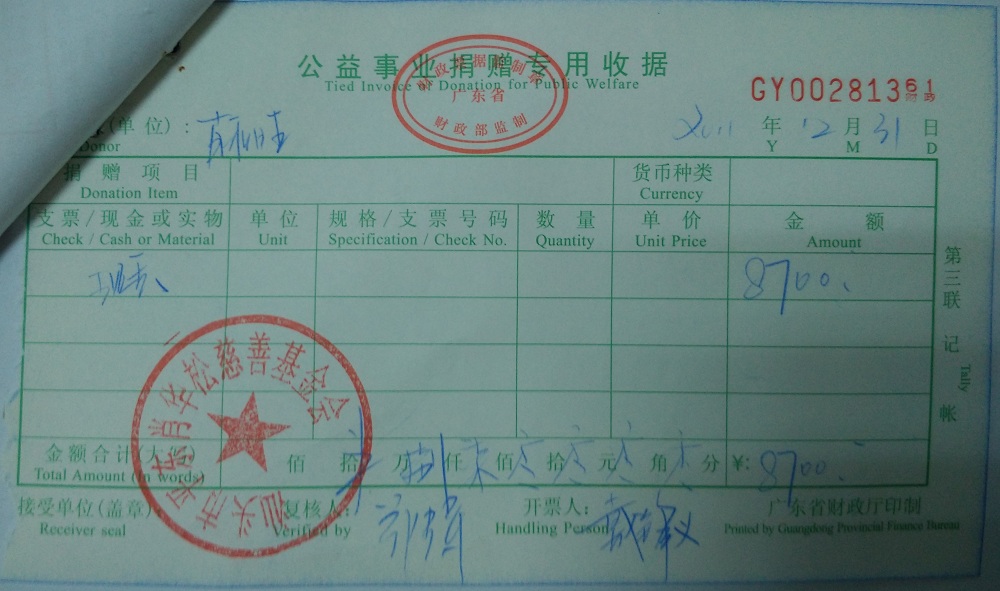 公益事业捐赠专用收据
Tied Invoice of Donation for Public Welfare
广东省
财政部监制
GY00281361
财政
(单位):
Donor
2011 年 12 月 31 日
Y M D
捐赠项目 货币种类
Donation Item Currency
支票/现金或实物 单位 规格/支票号码 数量 单价 金额
Check / Cash or Material Unit Specification / Check No. Quantity Unit Price Amount
现金 8700.
金额合计(大写) 佰 拾 万 捌 仟 柒 佰 拾 元 角 分 ¥: 8700
Total Amount (in words)
接受单位(盖章) 复核人: 开票人: 广东省财政厅印制
Receiver seal Verified by Handling Person Printed by Guangdong Provincial Finance Bureau
第三联 记帐
Tally
肖华松慈善基金会
汕头市